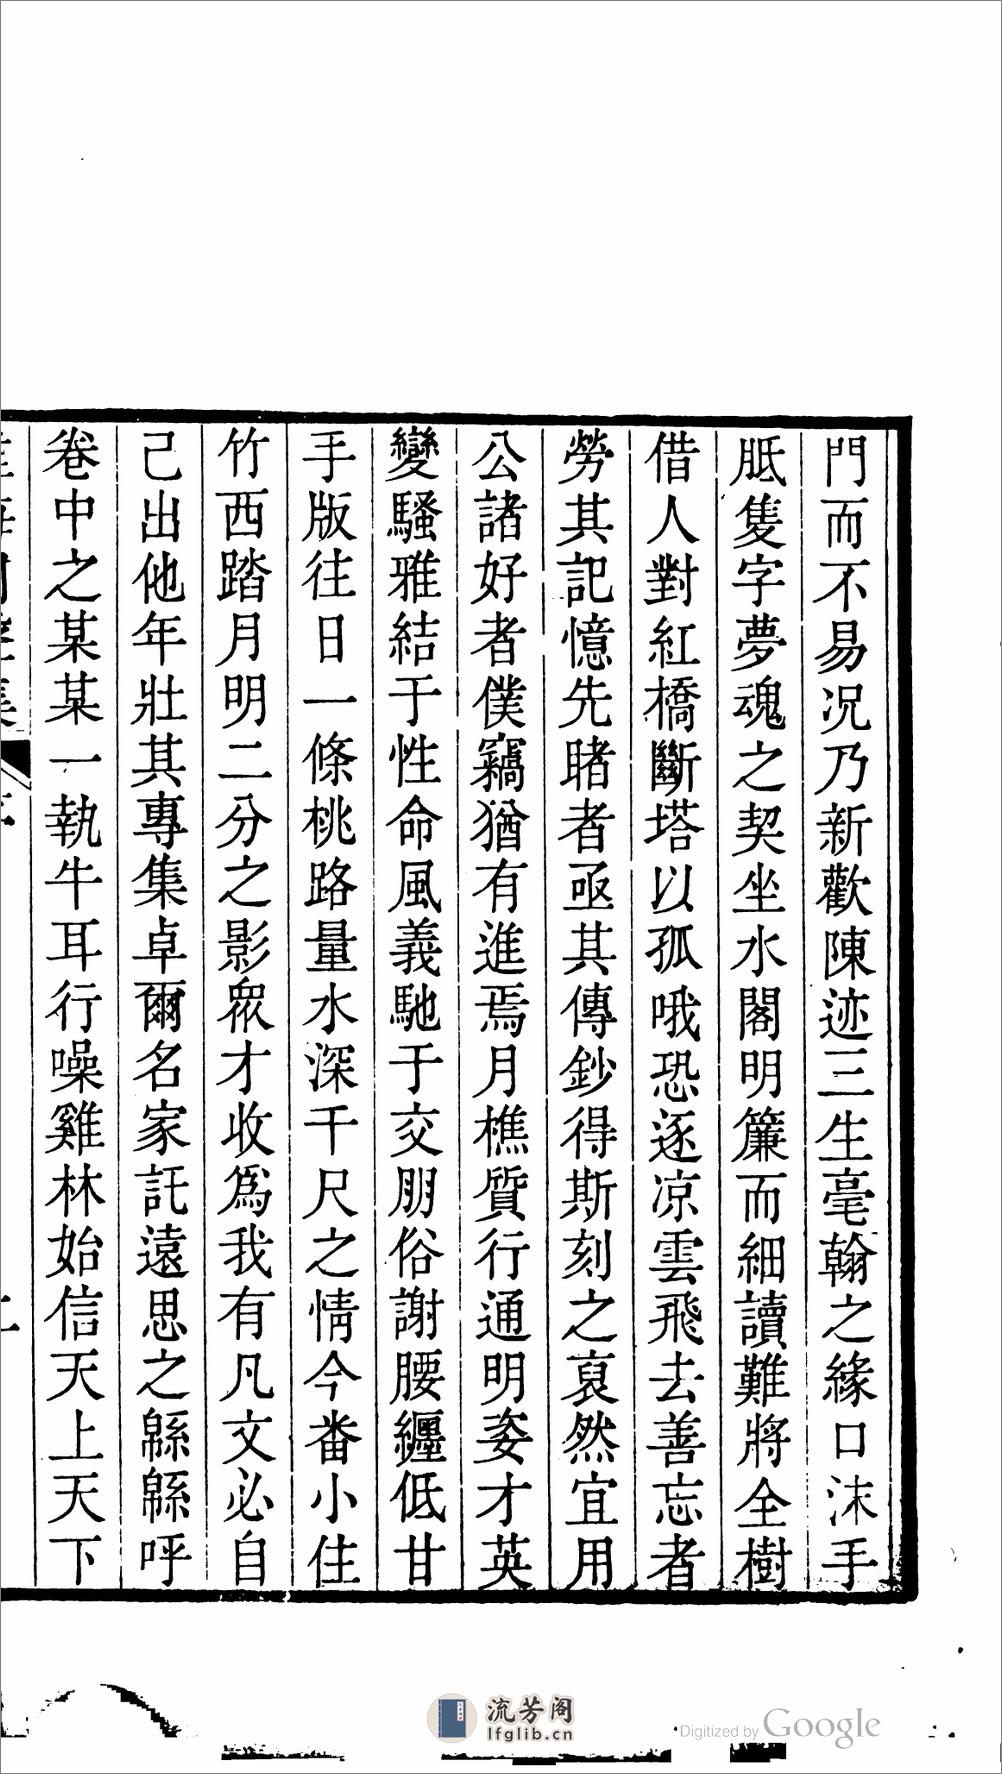 門而不易况乃新歡陳迹三生毫翰之緣口沫手
胝隻字夢魂之契坐水閣明簾而細讀難將全樹
借人對紅橋斷塔以孤哦恐逐凉雲飛去善忘者
勞其記憶先睹者亟其傳鈔得斯刻之裒然宜用
公諸好者僕竊猶有進焉月樵質行通明姿才英
變騷雅結于性命風義馳于交朋俗謝腰纏低甘
手版往日一條桃路量水深千尺之情今番小住
竹西踏月明二分之影衆才收爲我有凡文必自
己出他年壯其專集卓爾名家託遠思之緜緜呼
卷中之某某一執牛耳行噪雞林始信天上天下
流芳阁
lfglib.cn
Digitized by Google